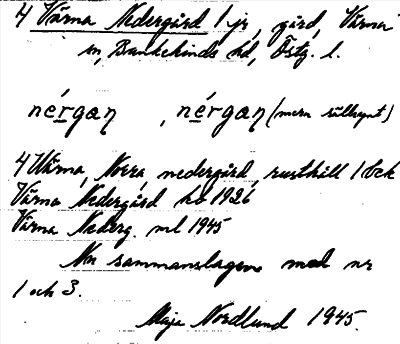 4 Värna Nedergård 1 jr, gård, Värna
sn, Bankekinds hd, Östg. l.
nérgaɳ , nérgaɳ (mera sällsynt)
4 Wärna, Norra, nedergård, rusthåll 1 
Värna Nedergård hb 1926
Värna Nederg. ml 1945
Nu sammanslagna med nr
1 och 3.
Maja Nordlund 1945.